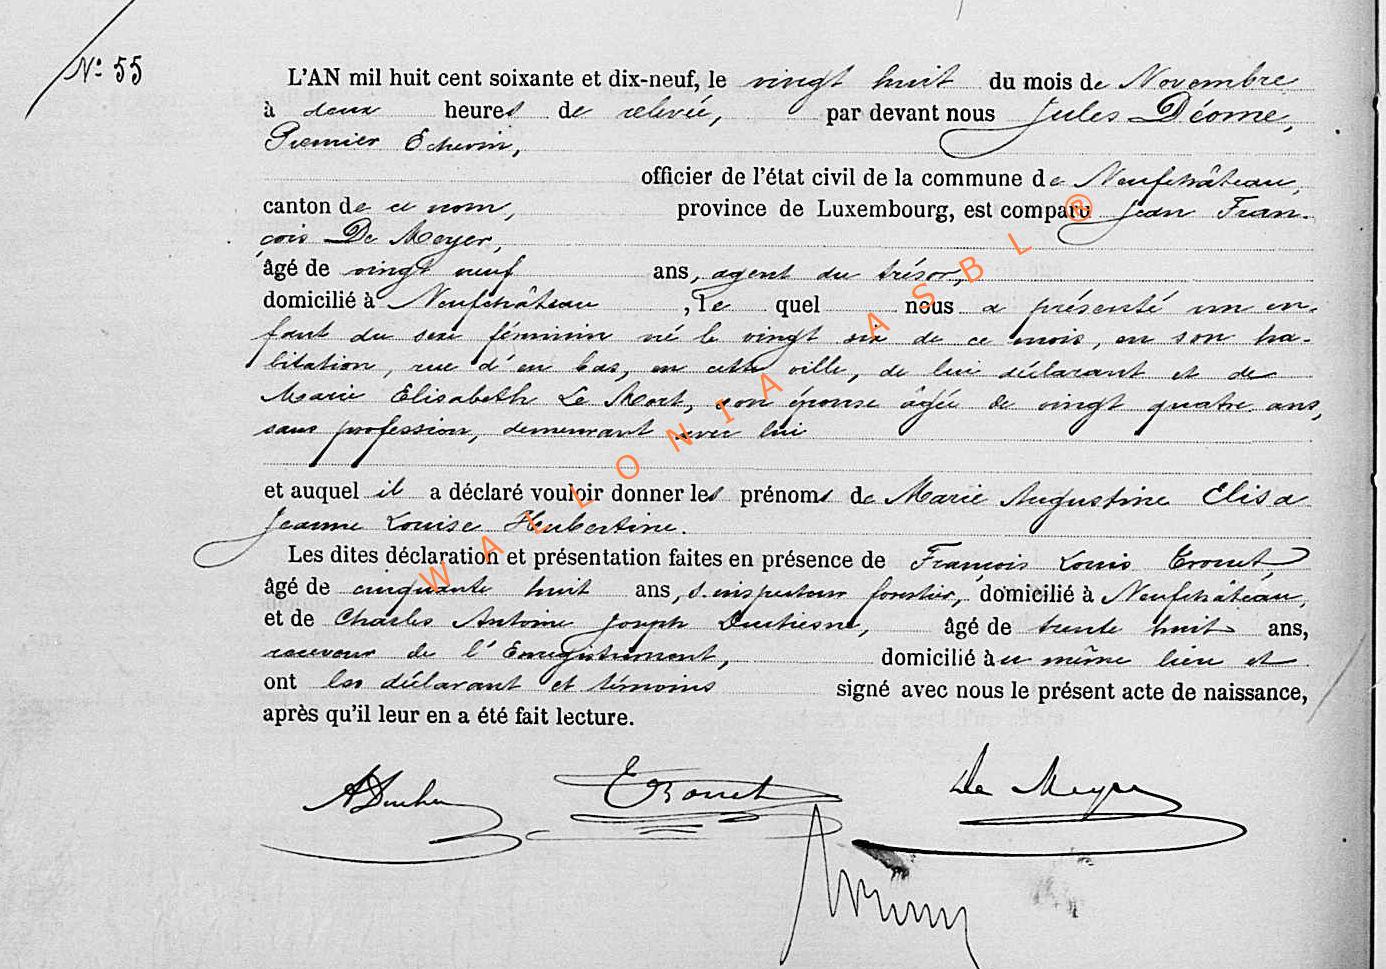 N° 55
L'AN mil huit cent soixante et dix-neuf, le vingt huit du mois de Novembre
à deux heures de relevée, par devant nous Jules Déome,
Premier Echevin,
officier de l'état civil de la commune de Neufchâteau,
canton de ce nom, province de Luxembourg, est comparu Jean Fran-
çois De Meyer,
âgé de vingt neuf ans, agent du trésor,
domicilié à Neufchâteau, le quel nous a présenté un en-
fant du sexe féminin né le vingt six de ce mois, en son ha-
bitation, rue d'en bas, en cette ville, de lui déclarant et de
Marie Elisabeth Le Mort, son épouse âgée de vingt quatre ans,
sans profession, demeurant avec lui
et auquel il a déclaré vouloir donner les prénoms de Marie Augustine Elisa
Jeanne Louise Hubertine.
Les dites déclaration et présentation faites en présence de François Louis Cronet,
âgé de cinquante huit ans, s. inspecteur forestier, domicilié à Neufchâteau,
et de Charles Antoine Joseph Duchesne, âgé de trente huit ans,
receveur de l'Enregistrement, domicilié au même lieu et
ont les déclarant et témoins signé avec nous le présent acte de naissance,
après qu'il leur en a été fait lecture.
De Meyer
WALLONIA ASBL ®